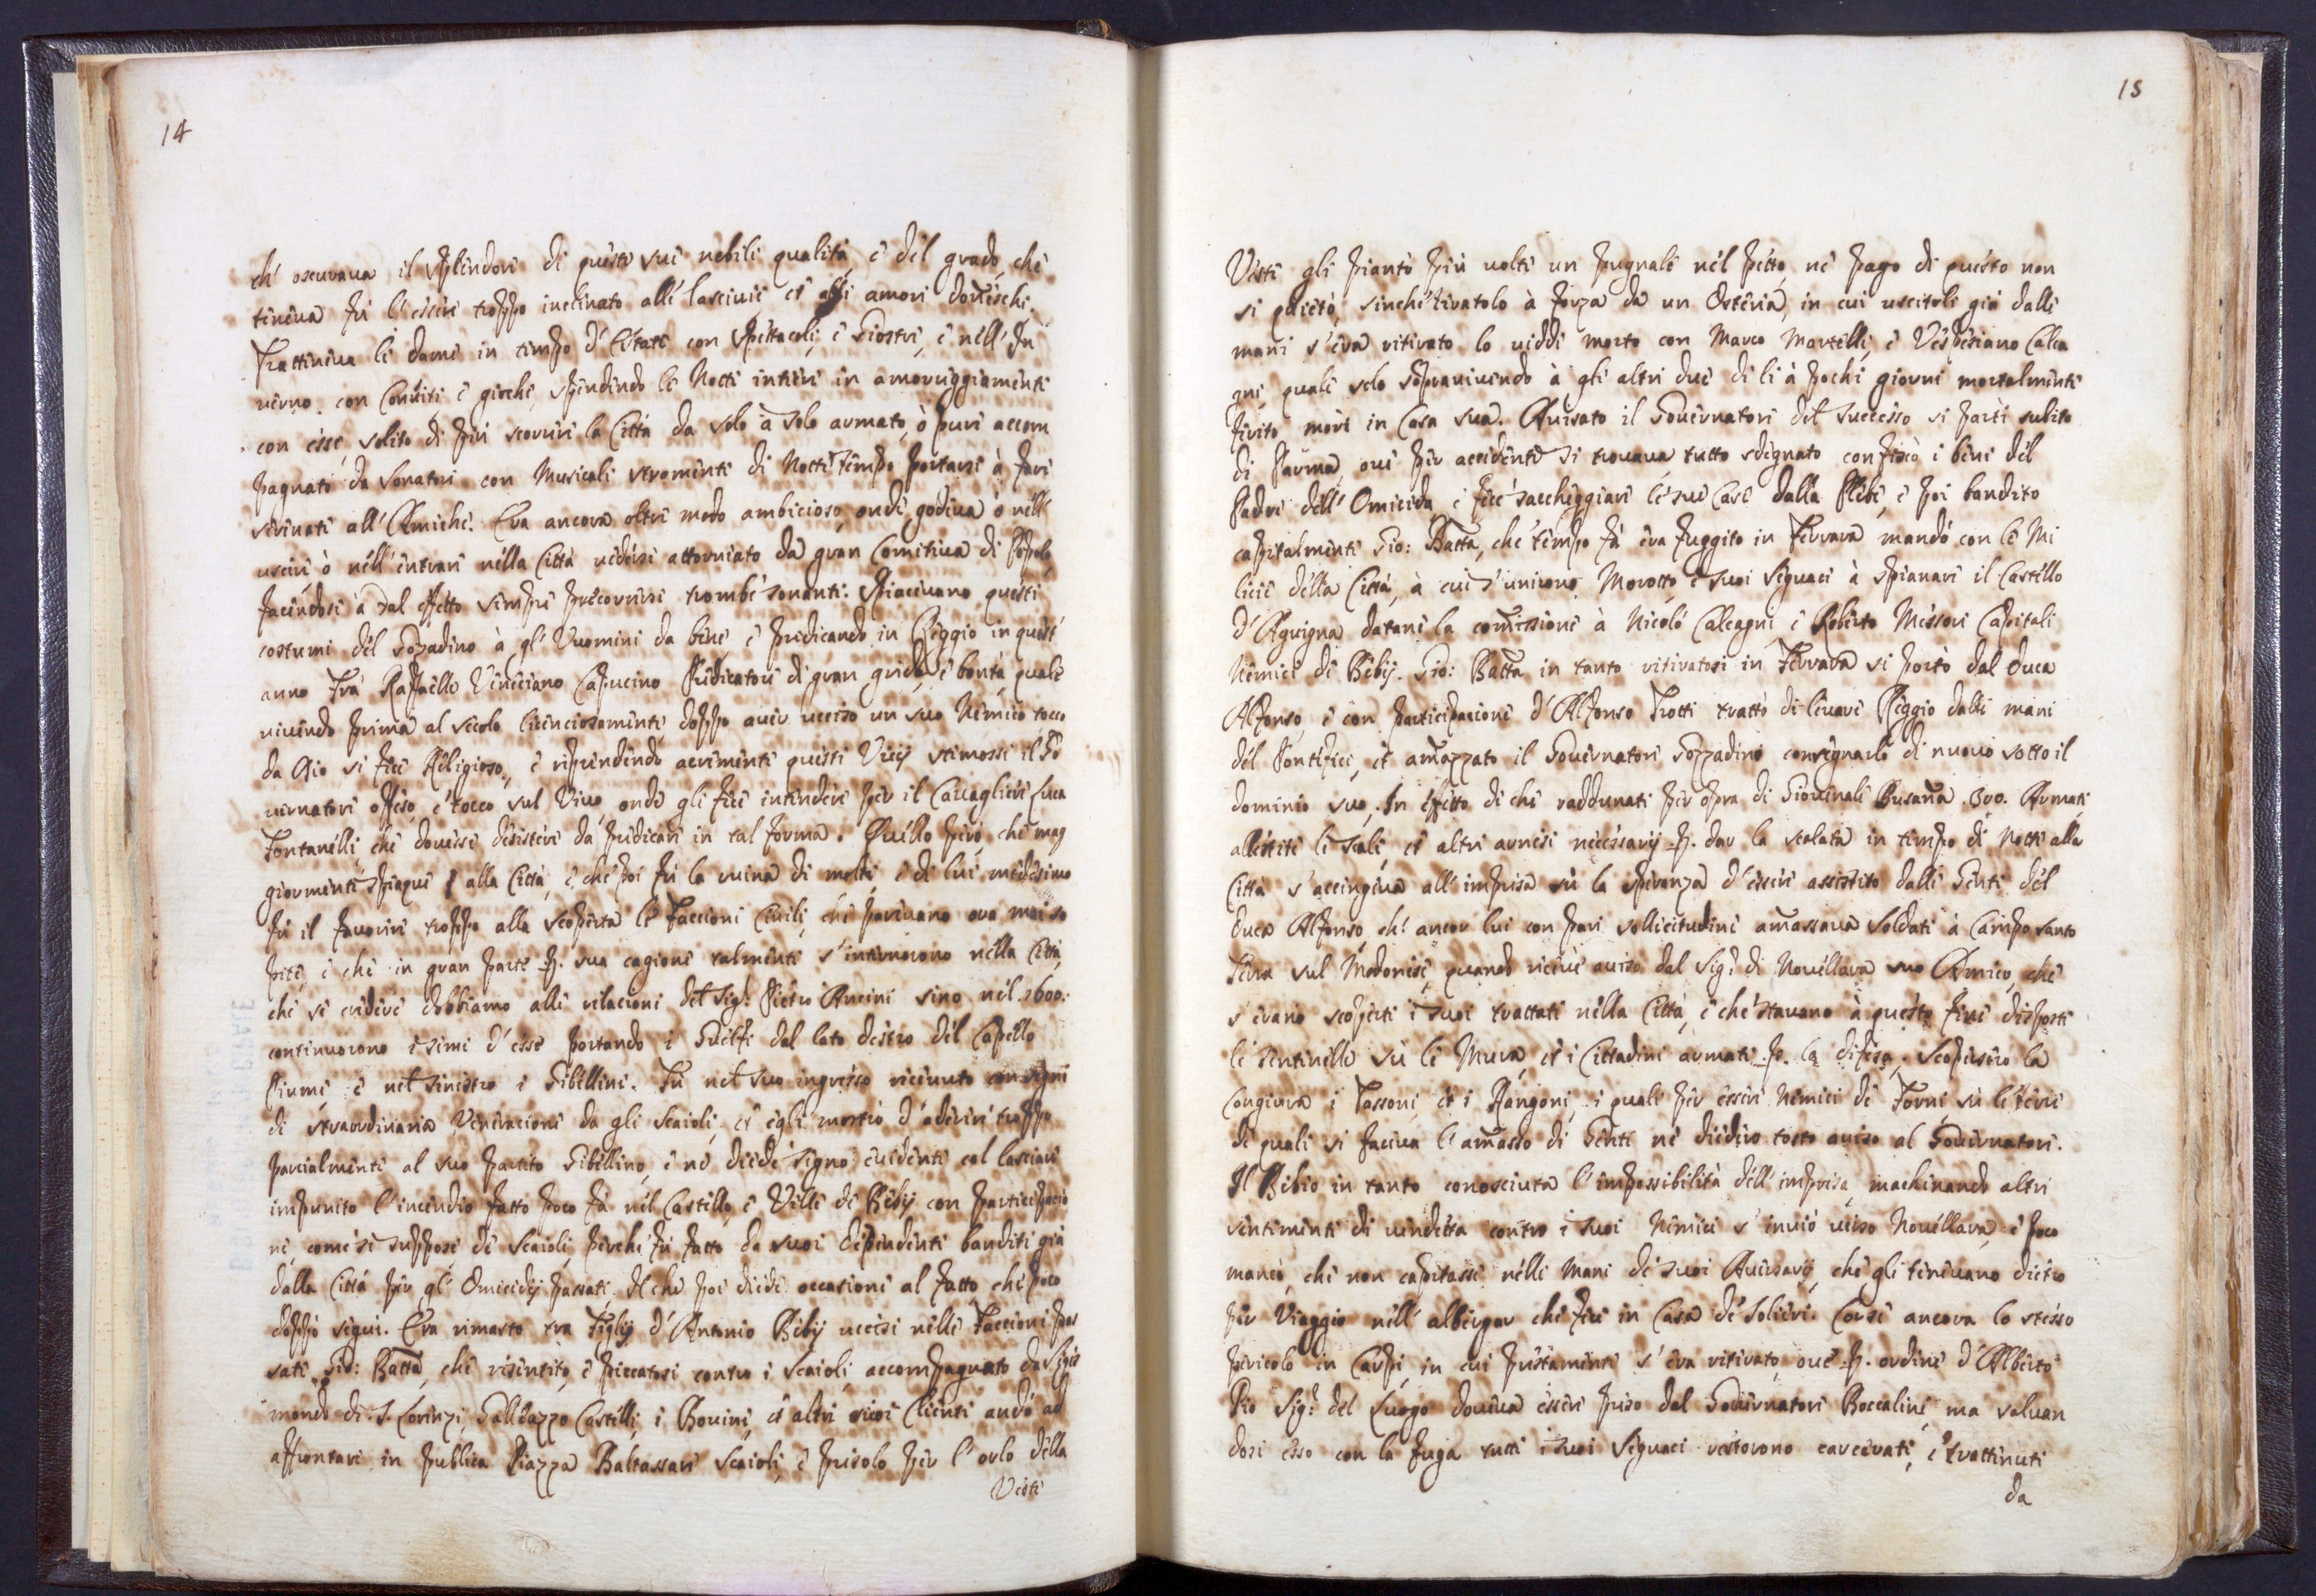 14
ch' oscuraua il splendore di queste sue nobili qualità, e del grado, che
teneua fù l'essere troppo inclinato alle lasciuie, et alli amori doneschi.
Tratteneua le dame in tempo d'Estate con spettacoli, e Giostre, e nell' In
uerno con Conuiti e giochi, spendendo le Notti intiere in amoreggiamenti
con esse, solito di più scorrere la Città da solo à solo armato, ò pure accom
pagnato da Sonatori con Musicali stromenti di Notte tempo portarsi à fare
serenate all' Amiche. Era ancora oltre modo ambicioso, onde godeua ò nell'
uscire ò nell' entrare nella Città uedersi attorniato da gran Comitiua di Popolo,
facendosi à tal effetto sempre precorrere trombe sonanti. Spiaceuano questi
costumi del Gozadino à gl' Vuomini da bene, e predicando in Reggio in quest'
anno Frà Raffaelle Veneciano Capucino Predicatore di gran grido, e bontà, quale
uiuendo prima al secolo licenciosamente, doppo auer ucciso un suo Nemico tocco
da Dio si fece Religioso, e riprendendo acremente questi Vicij stimossi il Go
uernatore offeso, e tocco sul Viuo onde gli fece intendere per il Cauagliere Luca
Fontanelli, che douesse desistere da predicare in tal forma. Quello però, che mag
giormente spiaque alla Città, e che poi fù la ruina di molti, e di lui medesimo
fù il fauorire troppo alla scoperta le Faccioni Ciuili, che pareuano ora mai so
pite, e che in gran parte p. sua cagione talmente s'internorono nella Città,
che se credere dobbiamo alle relacioni del Sig.r Pietro Ancini sino nel 1600.
continuorono i semi d'esse portando i Guelfi dal lato destro del Capello
Piume, e nel sinistro i Gibellini. Fù nel suo ingresso riceuuto con segni
di straordinaria Veneracione da gli Scaioli, et egli mostrò d'aderire troppo
parcialmente al suo partito Gibellino, e ne diede segno euidente col lasciare
impunito l'incendio fatto poco fà nel Castello, e Ville de Bebij con participacio
ne, come si suppose de Scaioli, perche fù fatto da suoi dependenti banditi già
dalla Città per gl' Omicidij passati. Il che poi diede occasione al fatto che poco
doppò segui. Era rimasto tra Figlij d'Antonio Bebij uccisi nelle Faccioni pas
sate Gio: Batta, che risentito, e piccatosi contro i Scaioli, accompagnato da Sigis
mondo di S. Lorenzi, Galeazzo Castelli, i Bouini, et altri suoi Clienti andò ad
affrontare in publica Piazza Baltassare Scaioli, e presolo per l'orlo della
Veste
15
Veste gli piantò più uolte un pugnale nel petto, ne pago di questo non
si quietò, sinche tiratolo à forza da un Osteria, in cui uscitoli già dalle
mani s'era ritirato lo uidde morto con Marco Martelli, e Vespesiano Calca
gni, quale solo soprauiuendo à gli altri due di li à pochi giorni mortalmente
ferito morì in Casa sua. Auisato il Gouernatore del successo si partì subito
di Parma, oue per accidente si trouaua tutto sdegnato confiscò i beni del
Padre dell' Omicida, e fece saccheggiare le sue Case dalla Plebe, e poi bandito
capitalmente Gio: Batta, che tempo fà era fuggito in Ferrara mandò con le Mi
licie della Città, à cui s'unirono Morotto, e suoi Seguaci à spianare il Castello
d'Arquigna datane la comissione à Nicolò Calcagni e Roberto Messori Capitali
Nemici de Bebij. Gio: Batta in tanto ritiratosi in Ferrara si portò dal Duca
Alfonso, e con participacione d'Alfonso Trotti trattò di leuare Reggio dalle mani
del Pontefice, et amazzato il Gouernatore Gozzadino consegnarlo di nuouo sotto il
dominio suo. In effetto di che raddunati per opra di Giouenale Busana 300. Armati,
allestite le scale, et altri arnesi necessarij p. dar la scalata in tempo di Notte alla
Città s'accingeua all' impresa sù la speranza d'essere assistito dalle Genti del
Duca Alfonso, ch' ancor lui con pari sollicitudine amassaua Soldati à Campo santo
Terra sul Modonese, quando riceuè auiso dal Sig.r di Nouellara suo Amico, che
s'erano scoperti i suoi trattati nella Città, e che stauano à questo fine disposte
le Sentinelle sù le Mura, et i Cittadini armati p. la difesa. Scopersero la
Congiura i Tassoni, et i Rangoni, i quali per essere Nemici de Forni, sù le terre
de quali si faceua l'amasso di Genti ne diedero tosto auiso al Gouernatore.
Il Bebio in tanto conosciuta l'impossibilità dell' impresa, machinando altri
sentimenti di uendetta contro i suoi Nemici s'inuiò uerso Nouellara, e poco
mancò, che non capitasse nelle mani de suoi Auersarij, che gli teneuano dietro
per Viaggio nell' albergar che fece in Casa de Solieri. Corse ancora lo stesso
pericolo in Carpi, in cui prestamente s'era ritirato, oue p. ordine d'Alberto
Pio Sig.r del Luogo doueua essere preso dal Gouernatore Boccalini, ma saluan
dosi esso con la fuga tutti i suoi Seguaci restorono carcerati, e trattenuti
da